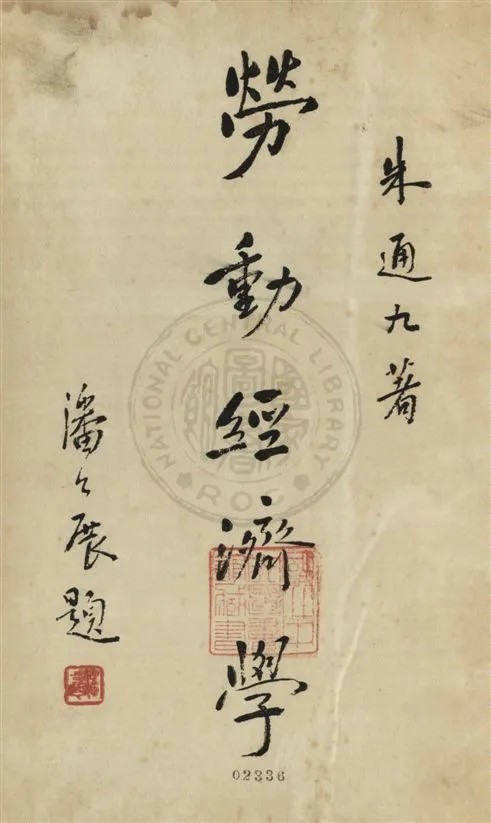 朱通九著
勞動經濟學
潘公展題
NATIONAL CENTRAL LIBRARY
ROC
02336